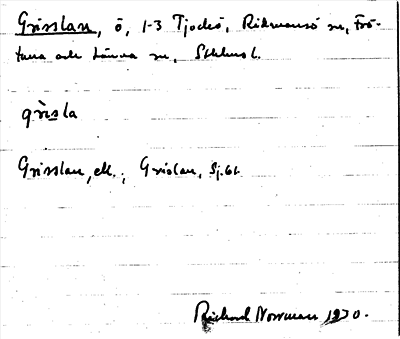 Grisslan, ö, 1-3 Tjockö, Rådmansö sn, Frö-
tuna och Länna sn, Sthlms l.
grisla
Grisslan, ek., Grislan, Sj.kt
Richard Norrman 1970.